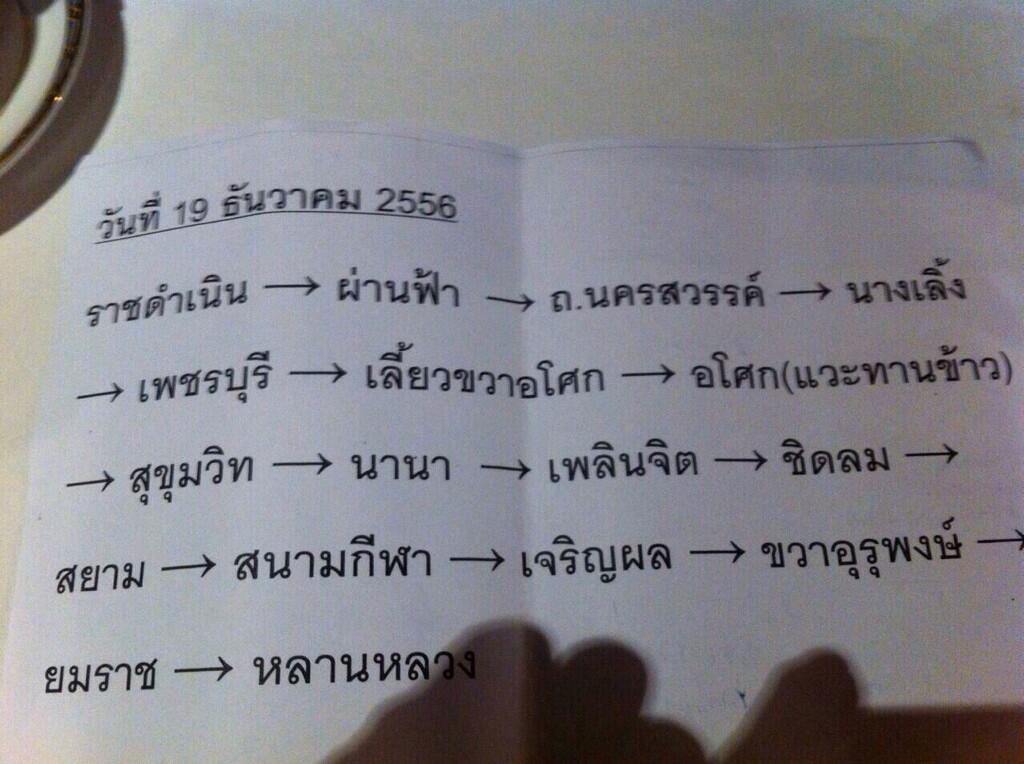 วันที่ 19 ธันวาคม 2556
ราชดำเนิน → ผ่านฟ้า → ถ.นครสวรรค์ → นางเลิ้ง
→ เพชรบุรี → เลี้ยวขวาอโศก → อโศก(แวะทานข้าว)
→ สุขุมวิท → นานา → เพลินจิต → ชิดลม →
สยาม → สนามกีฬา → เจริญผล → ขวาอุรุพงษ์ →
ยมราช → หลานหลวง